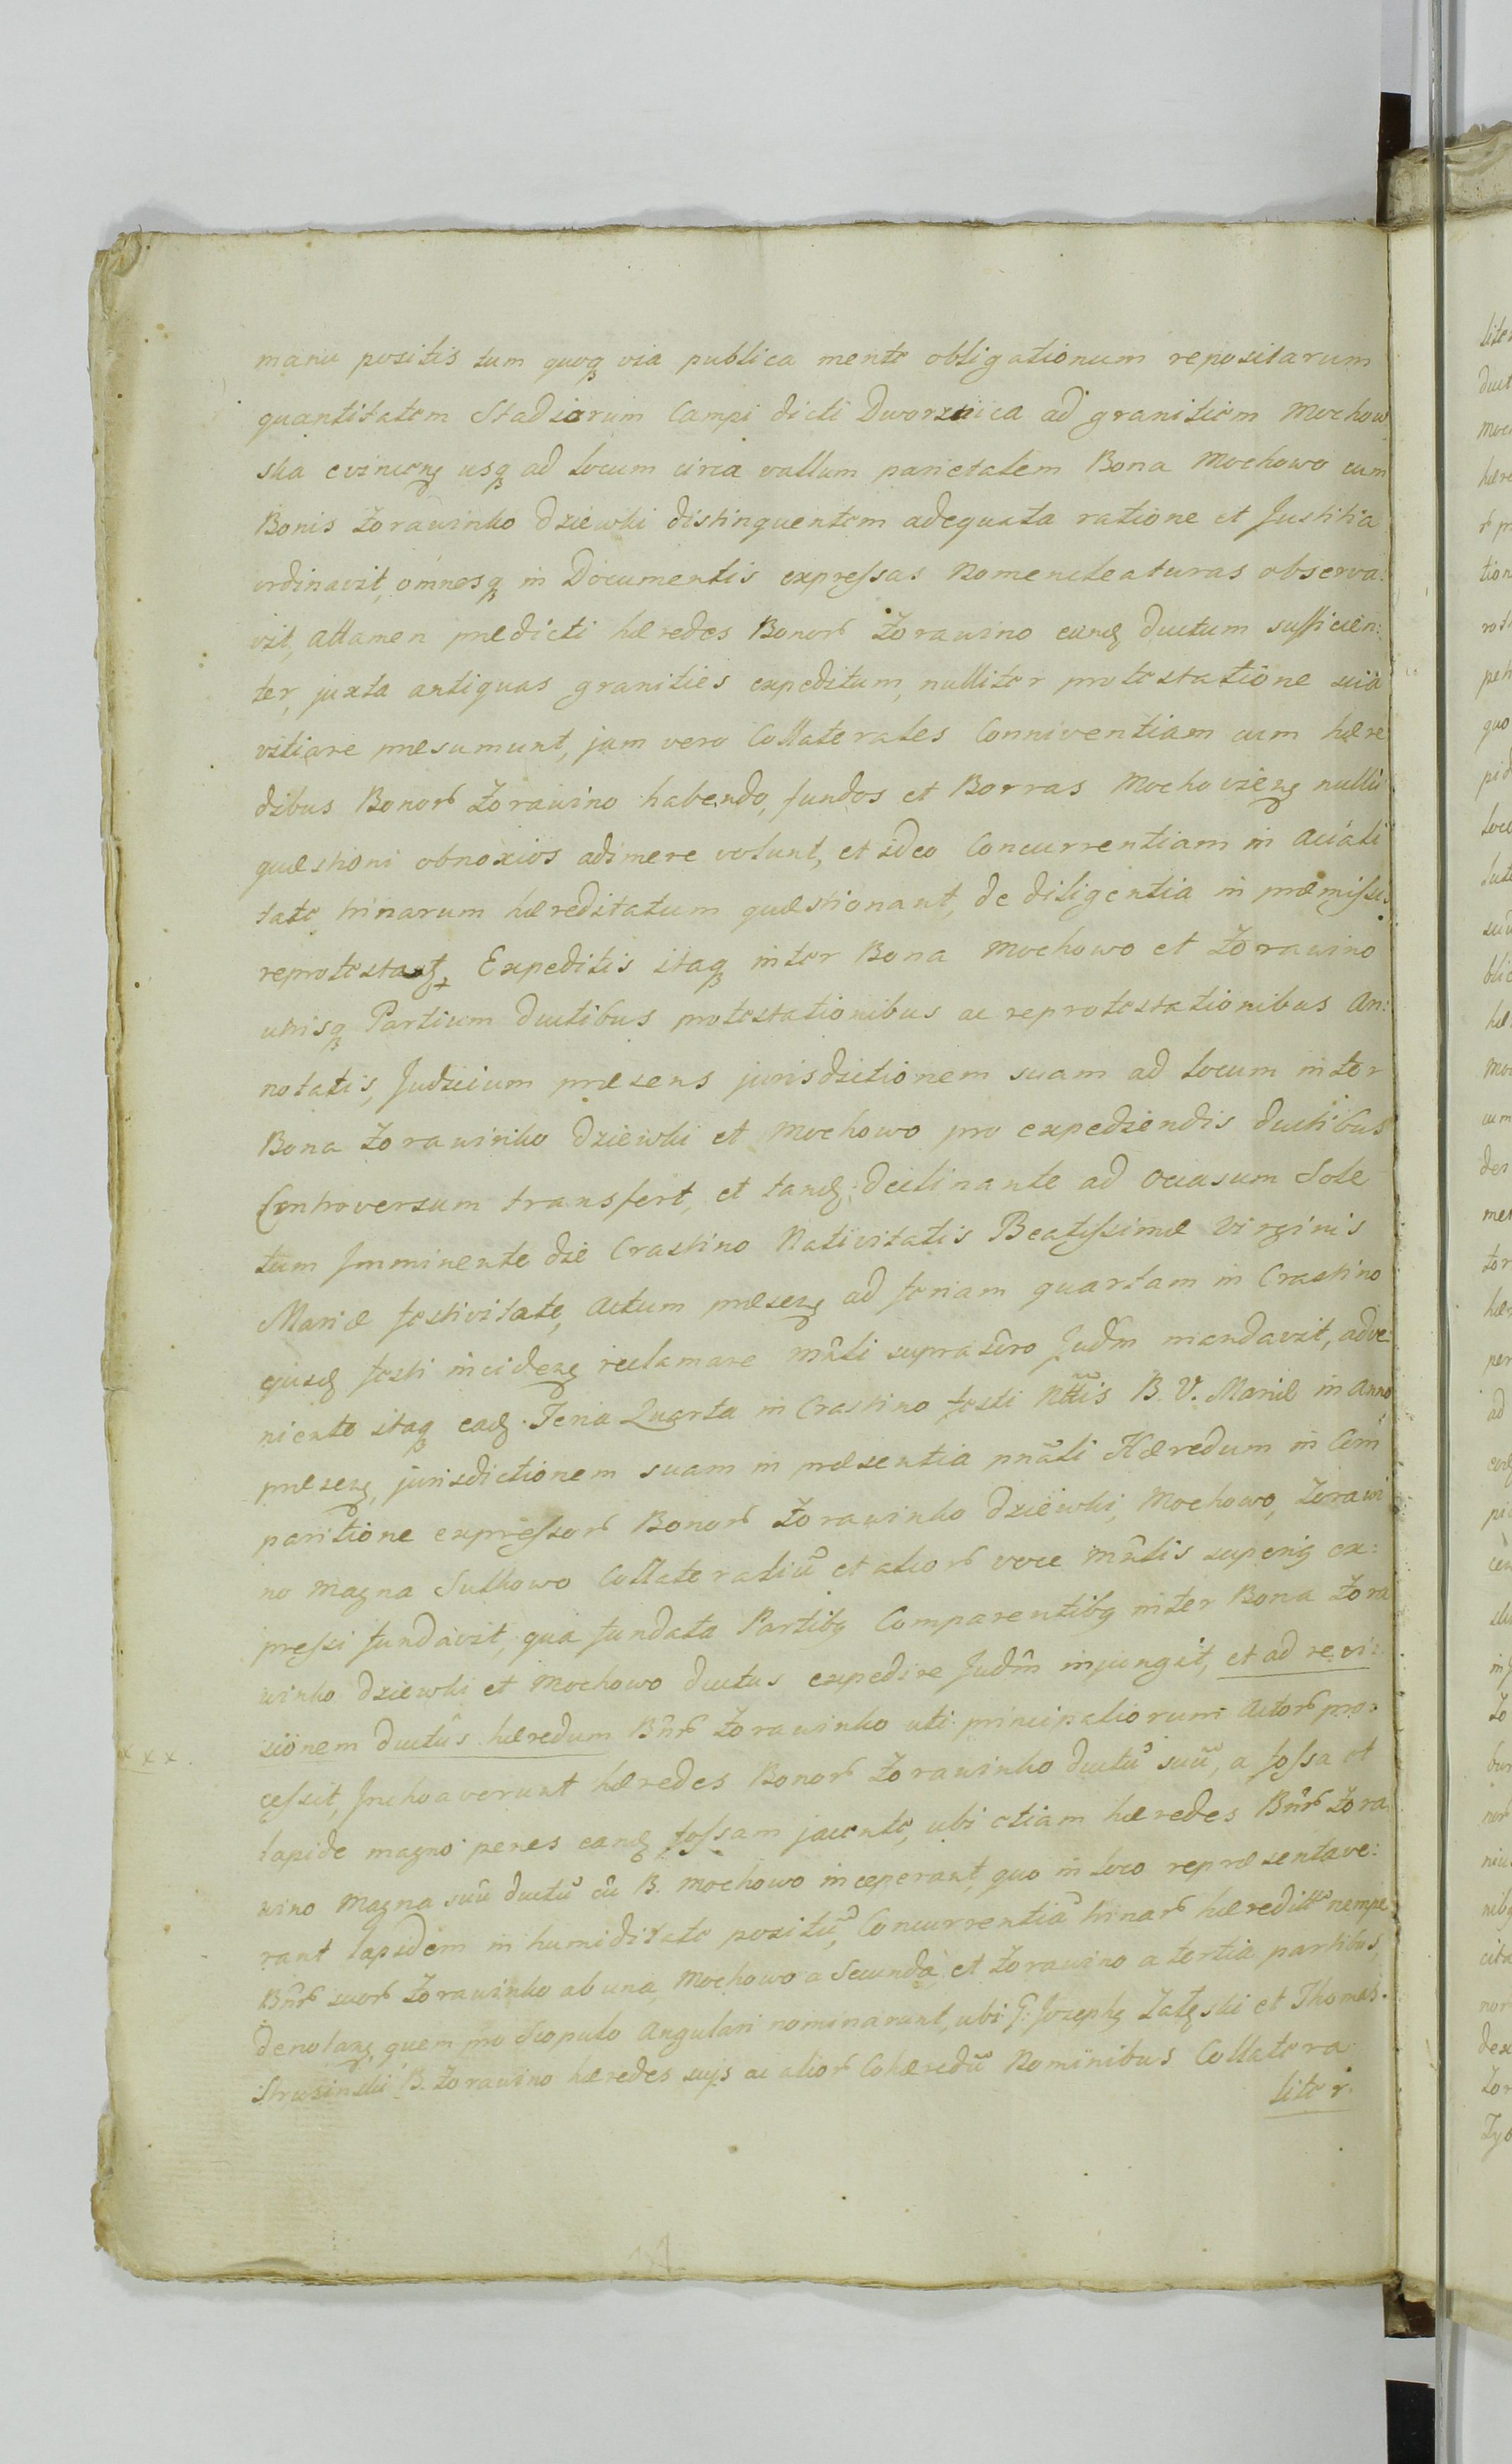 manu positis tum quoq via publica mente obligationum repositarum
quantitatem Stadiorum Campi dicti Dworznica ad granitiem Mochow
ska evincens usq ad locum circa vallum parietalem Bona Mochowo cum
Bonis Żorawinko Dziewki distinguentem adequata ratione et Justitia
ordinavit, omnesq in Documentis expressas Nomencleaturas observa:
vit, attamen prædicti hæredes Bonor Żorawino eund ductum sufficien:
ter, juxta antiquas granities expeditum, nulliter protestatione suâ
vitiare præsumunt, jam vero Collaterales Conniventiam cum hære
dibus Bonor Żorawino habendo, fundos et Borras Mochoviens nulli
quæstioni obnoxios adimere volunt, et ideo Concurrentiam in
tate trinarum hæreditatum quæstionant, de diligentia in præmissis
reprotestant. Expeditis itaq inter Bona Mochowo et Żorawino
utrisq Partium Ductibus protestationibus ac reprotestationibus An:
notatis, Judicium præsens jurisdictionem suam ad locum inter
Bona Żorawinko Dziewki et Mochowo pro expediendis ductibus
Controversum transfert, et tand: declinante ad Occasum Sole
tum Imminente die Crastino Nativitatis Beatissimæ Virginis
Mariæ festivitate, Actum præsens ad feriam quartam in Crastino
ejusd festi incidens reclamare mîli suprascro Judm mandavit, adve:
niente itaq ead. Feria Quarta in Crastino festi Nttis B. V. Mariæ in Anno
præsens, jurisdictionem suam in præsentia pnâli Hæredum in Com
paritione expressor Bonor Żorawinko Dziewki, Mochowo, Żorawi
no Magna Sulkowo Collateraliu et alior voce mîlis superig ex:
pressi fundavit, quâ fundata Partibq Comparentibq inter Bona Żora
winko Dziewki et Mochowo ductus expedire Judm injungit, et ad revi:
sionem ductûs hæredum Bnr Żorawinko uti principaliorum Actor pro:
xxx.
cessit, Inchoaverunt hæredes Bonor Żorawinko ductu suu, a fossa et
lapide magno penes eand fossam jacente, ubi etiam hæredes Bnr Żora
wino Magna suu ductu cu B. Mochowo inceperant, quo in loco repræsentave:
rant lapidem in humiditate positu, Concurrentia trinar hæreditt nempe
Bnr suor Żorawinko ab una, Mochowo a Secunda, et Żorawino a tertia partibus,
denotans, quem pro Scopulo Angulari nominarunt, ubi G: Josephq Załęski et Thomas.
Strusinski B. Żorawino hæredes suis ac alior Cohæredu Nominibus Collatera
liter.